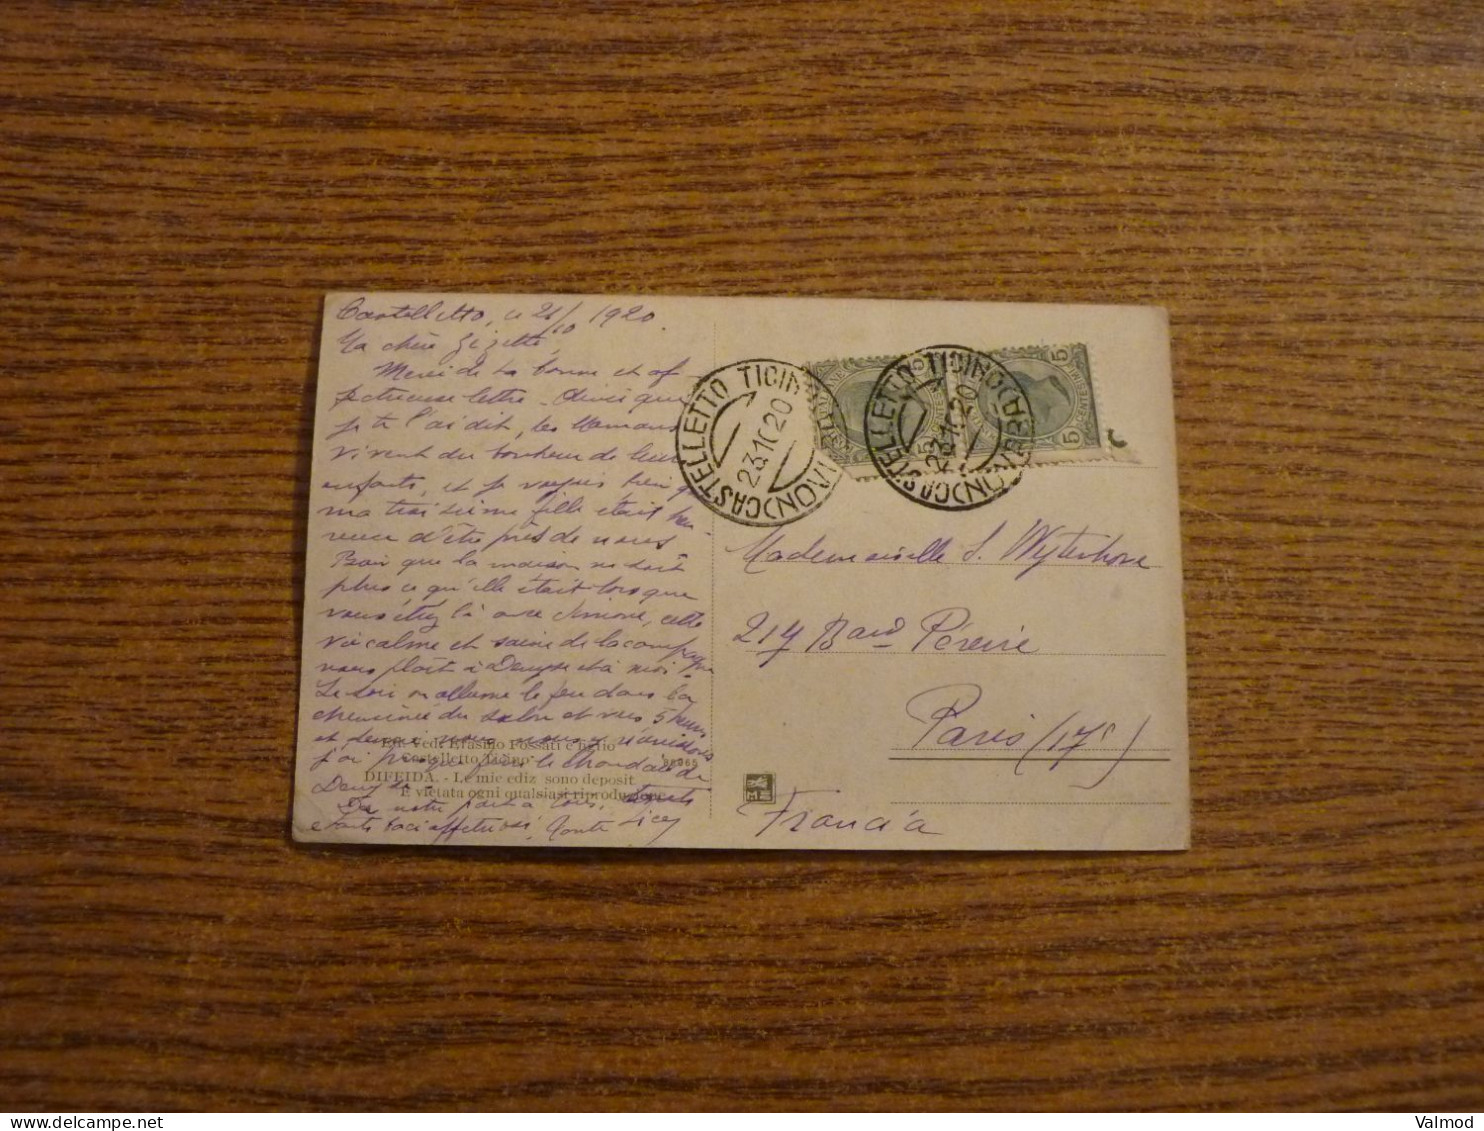 Castelletto, ce 21/10 1920.
Ma chère Zizette,
Merci de ta bonne et af-
fectueuse lettre. Ainsi que
je te l'ai dit, les Mamans
vivent du bonheur de leurs
enfants, et je voyais bien que
ma troisième fille était heu-
reuse d'être près de nous
Bien que la maison ne soit
plus ce qu'elle était lorsque
vous étiez là avec Simone, cette
vie calme et saine de la campagne
nous plait à Denyse et à moi.
Le soir on allume le feu dans la
cheminée du salon et vers 5 heures
et nous nous y réunissons
Denyse
tanti baci affettuosi,
Edit. Ved. Erasmo Fossati e figlio
Castelletto Ticino
98965
DIFFIDA. - Le mie ediz sono deposit
E vietata ogni qualsiasi riproduzione
CASTELLETTO TICINO (NOVARA)
23.10.20
CASTELLETTO TICINO (NOVARA)
23.10.20
5
5
5
5
CENTESIMI
Mademoiselle S. Wyterhove
217 Bard Péreire
Paris (17e)
Francia
Valmod